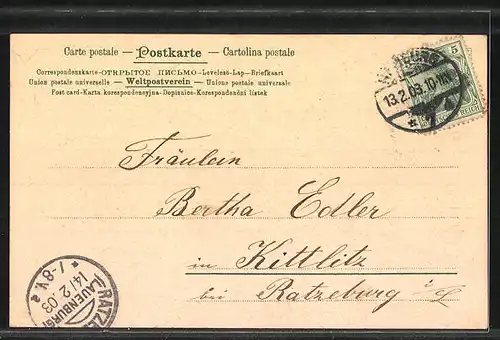 Carte postale — Postkarte — Cartolina postale
Correspondenzkarte-ОТКРЫТОЕ ПИСЬМО-Levelező-Lap-Briefkaart
Union postale universelle — Weltpostverein — Unione postale universale
Post card-Karta korespondencyjna-Dopisnice-Korespondenční lístek
5
13.2.03.10-11V.
Fräulein
Bertha Edler
in Kittlitz
bei Ratzeburg i/L
RATZE
LAUENBURG
14/2.03
7-8V.